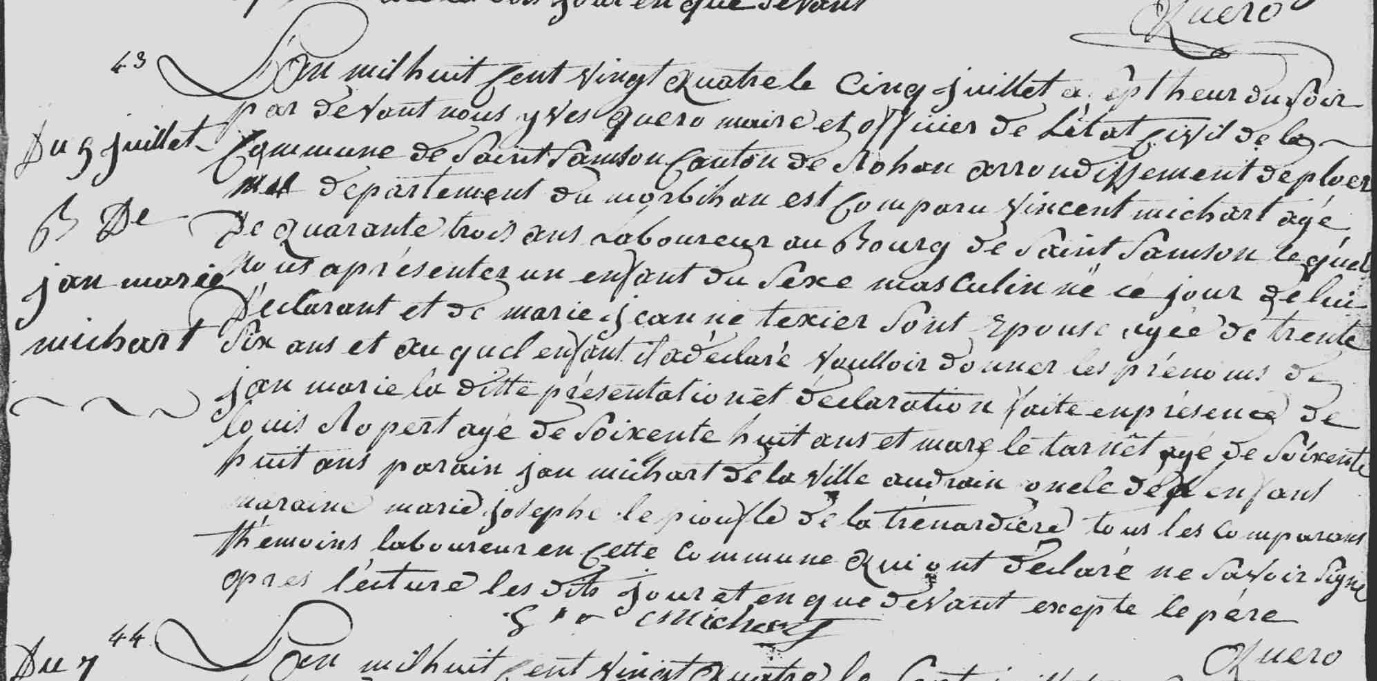 jour en que devant
Quero
43
L'an mil huit Cent vingt quatre le Cinq juillet a sept heur du Soir
par devant nous yves quero maire et officier de L'état Civil de la
Du 5 juillet
Commune de Saint Samson Canton de Rohan arrondissement de ploer
mel departement du morbihan est Comparu Vincent michart agé
B De
De quarante trois ans Laboureur au Bourg de Saint Samson le quel
jan marie
Nous a présenter un enfant du Sexe masculin né ce jour de lui
Déclarant et de marie jeanne texier Sont Epouse agée de trente
michart
Six ans et au quel enfant il a déclaré Voulloir donner les prénoms de
jan marie la ditte présentation et déclaration faite en présence de
louis Ropert agé de Soixente huit ans et marc le tarnêt agé de Soixente
huit ans parain jan michart de la Ville audrain oncle de l'enfant
maraine marie josephe le pioufle de la trénardière tous les comparans
thémoins laboureur en Cette Commune Qui ont déclaré ne Savoir Signe
apres lécture les dits jour et en que devant excpte le pére
Michart
Quero
44
Du 7
L'an mil huit Cent vingt quatre le Sept